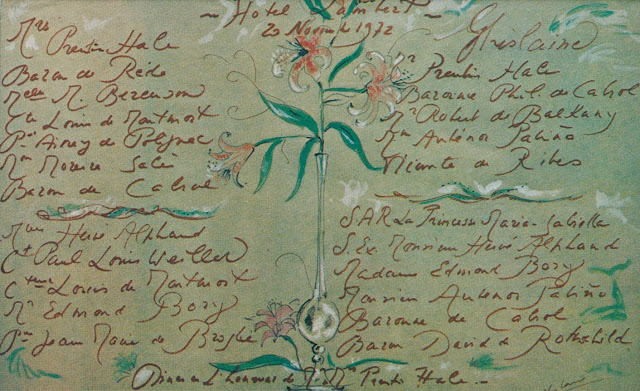 ~ Hotel Lambert ~
20 Novembre 1972
Mrs Prentis Hale
Baron de Redé
Melle M. Berenson
Cte Louis de Montmort
Pce Amery de Polignac
Mme Moreira Salès
Baron de Cabrol
Ghislaine
Mr Prentis Hale
Baronne Phil. de Cabrol
Mr Robert de Balkany
Mme Anténor Patiño
Vicomte de Ribes
Mme Hervé Alphand
Ct Paul Louis Weiller
Ctesse Louis de Montmort
Mr Edmond Bory
Pce Jean Marie de Broglie
S.A.R La Princesse Maria-Gabriella
S. Ex Monsieur Hervé Alphand
Madame Edmond Bory
Monsieur Antenor Patiño
Baronne de Cabrol
Baron David de Rothschild.
Diner en L'honneur de Mr Mme Prentis Hale.